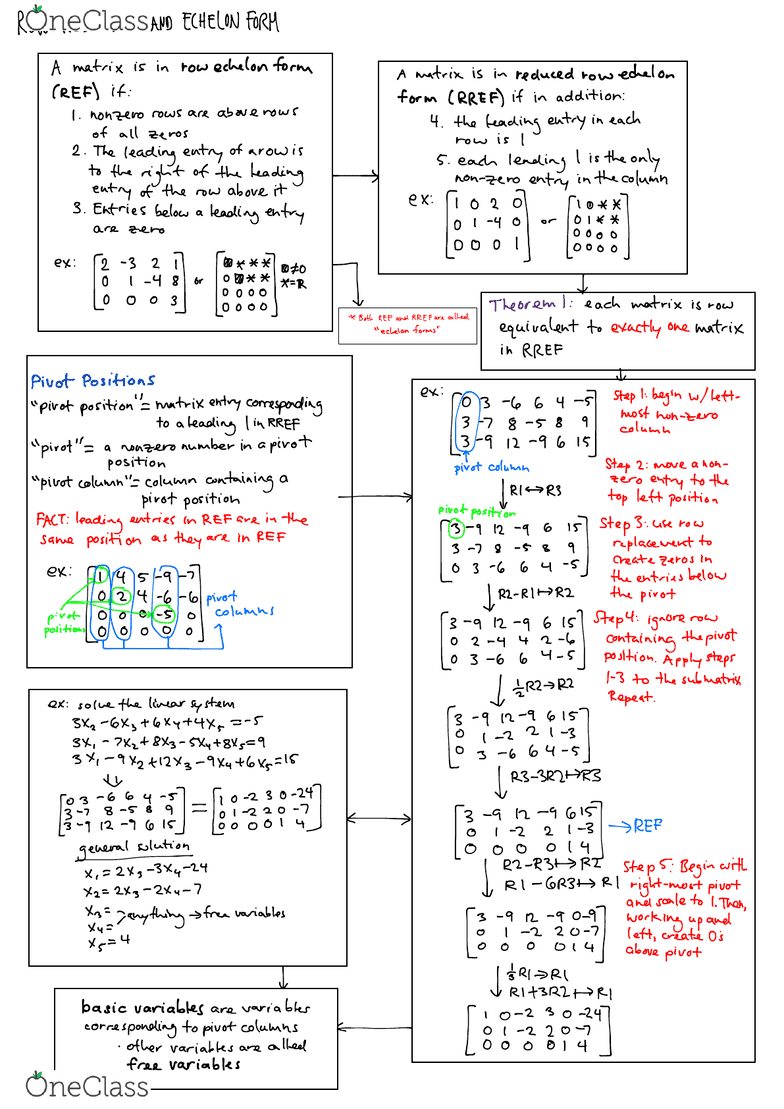 OneClass AND ECHELON FORM
A matrix is in row echelon form
(REF) if:
1. nonzero rows are above rows
of all zeros
2. The leading entry of a row is
to the right of the leading
entry of the row above it
3. Entries below a leading entry
are zero
ex: [2 -3 2 1
0 1 -4 8
0 0 0 3] or [■ * * *
0 ■ * *
0 0 0 0
0 0 0 0] ■≠0
*=R
A matrix is in reduced row echelon
form (RREF) if in addition:
4. the leading entry in each
row is 1
5. each leading 1 is the only
non-zero entry in the column
ex: [1 0 2 0
0 1 -4 0
0 0 0 1] or [1 0 * *
0 1 * *
0 0 0 0
0 0 0 0]
* Both REF and RREF are called
"echelon forms"
Theorem 1: each matrix is row
equivalent to exactly one matrix
in RREF
Pivot Positions
"pivot position" = matrix entry corresponding
to a leading 1 in RREF
"pivot" = a nonzero number in a pivot
position
"pivot column" = column containing a
pivot position
FACT: leading entries in REF are in the
same position as they are in REF
ex: [1 4 5 -9 -7
0 2 4 -6 -6
0 0 0 -5 0
0 0 0 0 0]
pivot
positions
pivot
columns
ex: [0 3 -6 6 4 -5
3 -7 8 -5 8 9
3 -9 12 -9 6 15]
pivot column
Step 1: begin w/ left-
most non-zero
column
R1↔R3
Step 2: move a non-
zero entry to the
top left position
pivot position
[3 -9 12 -9 6 15
3 -7 8 -5 8 9
0 3 -6 6 4 -5]
Step 3: use row
replacement to
create zeros in
the entries below
the pivot
R2-R1↦R2
[3 -9 12 -9 6 15
0 2 -4 4 2 -6
0 3 -6 6 4 -5]
Step 4: ignore row
containing the pivot
position. Apply steps
1-3 to the submatrix
Repeat.
½R2→R2
[3 -9 12 -9 6 15
0 1 -2 2 1 -3
0 3 -6 6 4 -5]
R3-3R2↦R3
[3 -9 12 -9 6 15
0 1 -2 2 1 -3
0 0 0 0 1 4]
→REF
R2-R3↦R2
R1-6R3↦R1
Step 5: Begin with
right-most pivot
and scale to 1. Then,
working up and
left, create 0s
above pivot
[3 -9 12 -9 0 -9
0 1 -2 2 0 -7
0 0 0 0 1 4]
⅓R1→R1
R1+3R2↦R1
[1 0 -2 3 0 -24
0 1 -2 2 0 -7
0 0 0 0 1 4]
ex: solve the linear system
3x₂-6x₃+6x₄+4x₅=-5
3x₁-7x₂+8x₃-5x₄+8x₅=9
3x₁-9x₂+12x₃-9x₄+6x₅=15
[0 3 -6 6 4 -5
3 -7 8 -5 8 9
3 -9 12 -9 6 15] = [1 0 -2 3 0 -24
0 1 -2 2 0 -7
0 0 0 0 1 4]
general solution
x₁=2x₃-3x₄-24
x₂=2x₃-2x₄-7
x₃=
x₄= >anything→free variables
x₅=4
basic variables are variables
corresponding to pivot columns
· other variables are called
free variables
OneClass